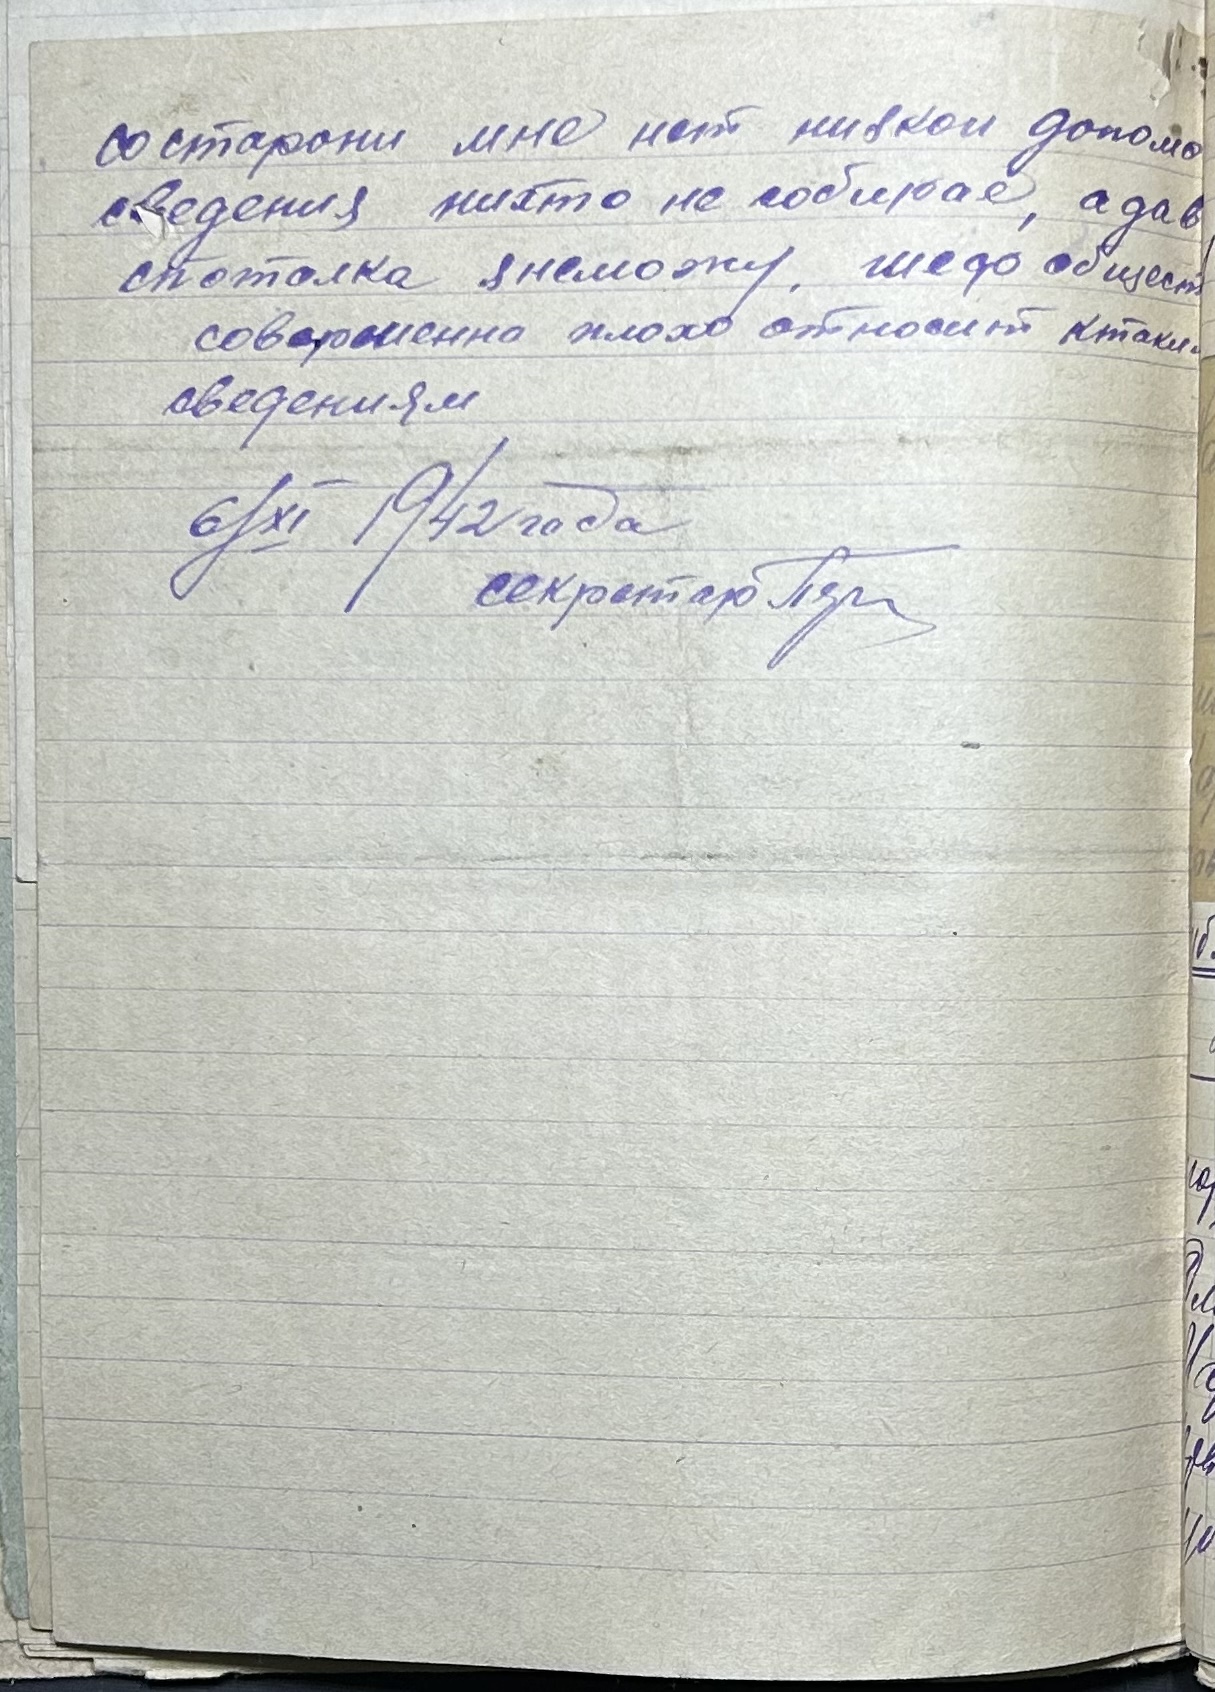 состарони мне нет ниякои допомо
сведения нихто не собирае, а дав
спотолка янеможу, шефо общест
совершенна плохо относит ктаким
сведениям
6/XI 1942 года
секретар